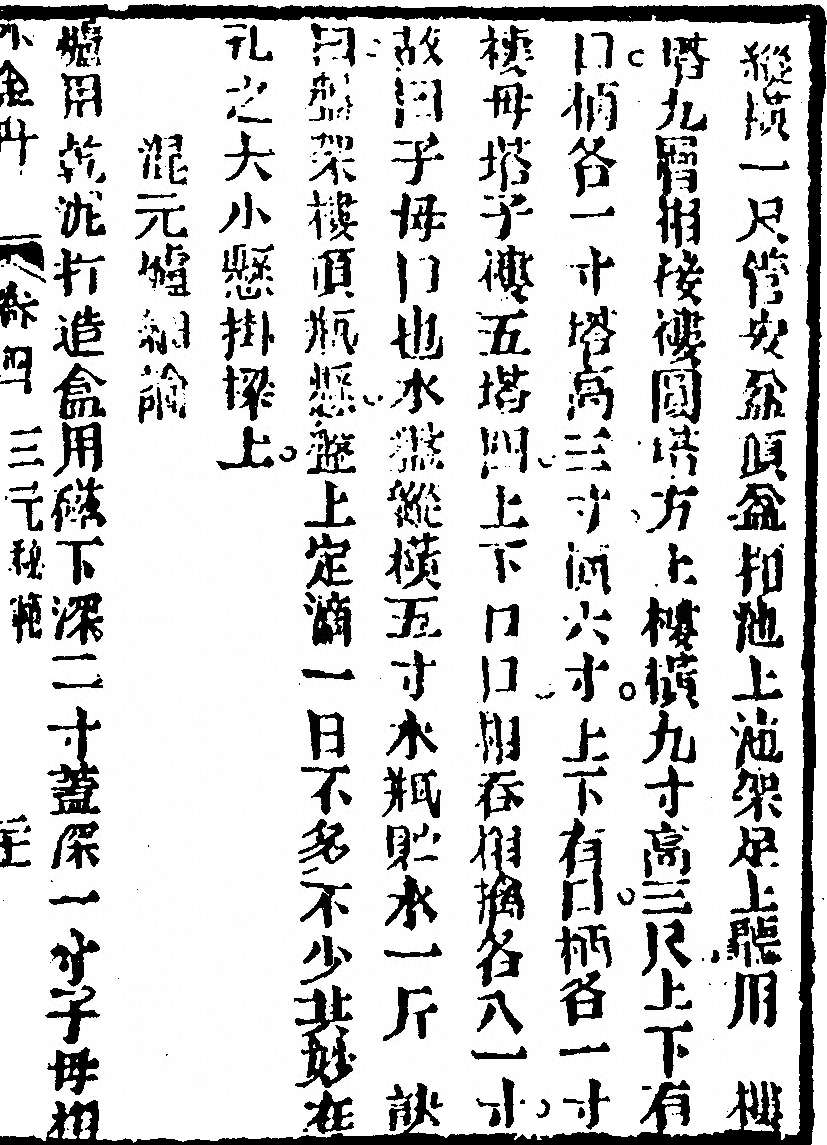 縱橫一尺管安盆頂盆扣池上池架足上聽用 樓
塔九層相接樓圓塔方上樓橫九寸高三尺上下有
口柄各一寸塔高三寸濶六寸上下有口柄各一寸
樓母塔子樓五塔四上下口口相吞相擒各八一寸
故曰子母口也水盤縱橫五寸水瓶貯水一斤 訣
曰盤架樓頂瓶懸盤上定滴一日不多不少其妙在
孔之大小懸掛梁上
混元爐細論
爐用乾泥打造盒用磁下深二寸蓋深一寸子母相
外金丹 卷四 三元秘範